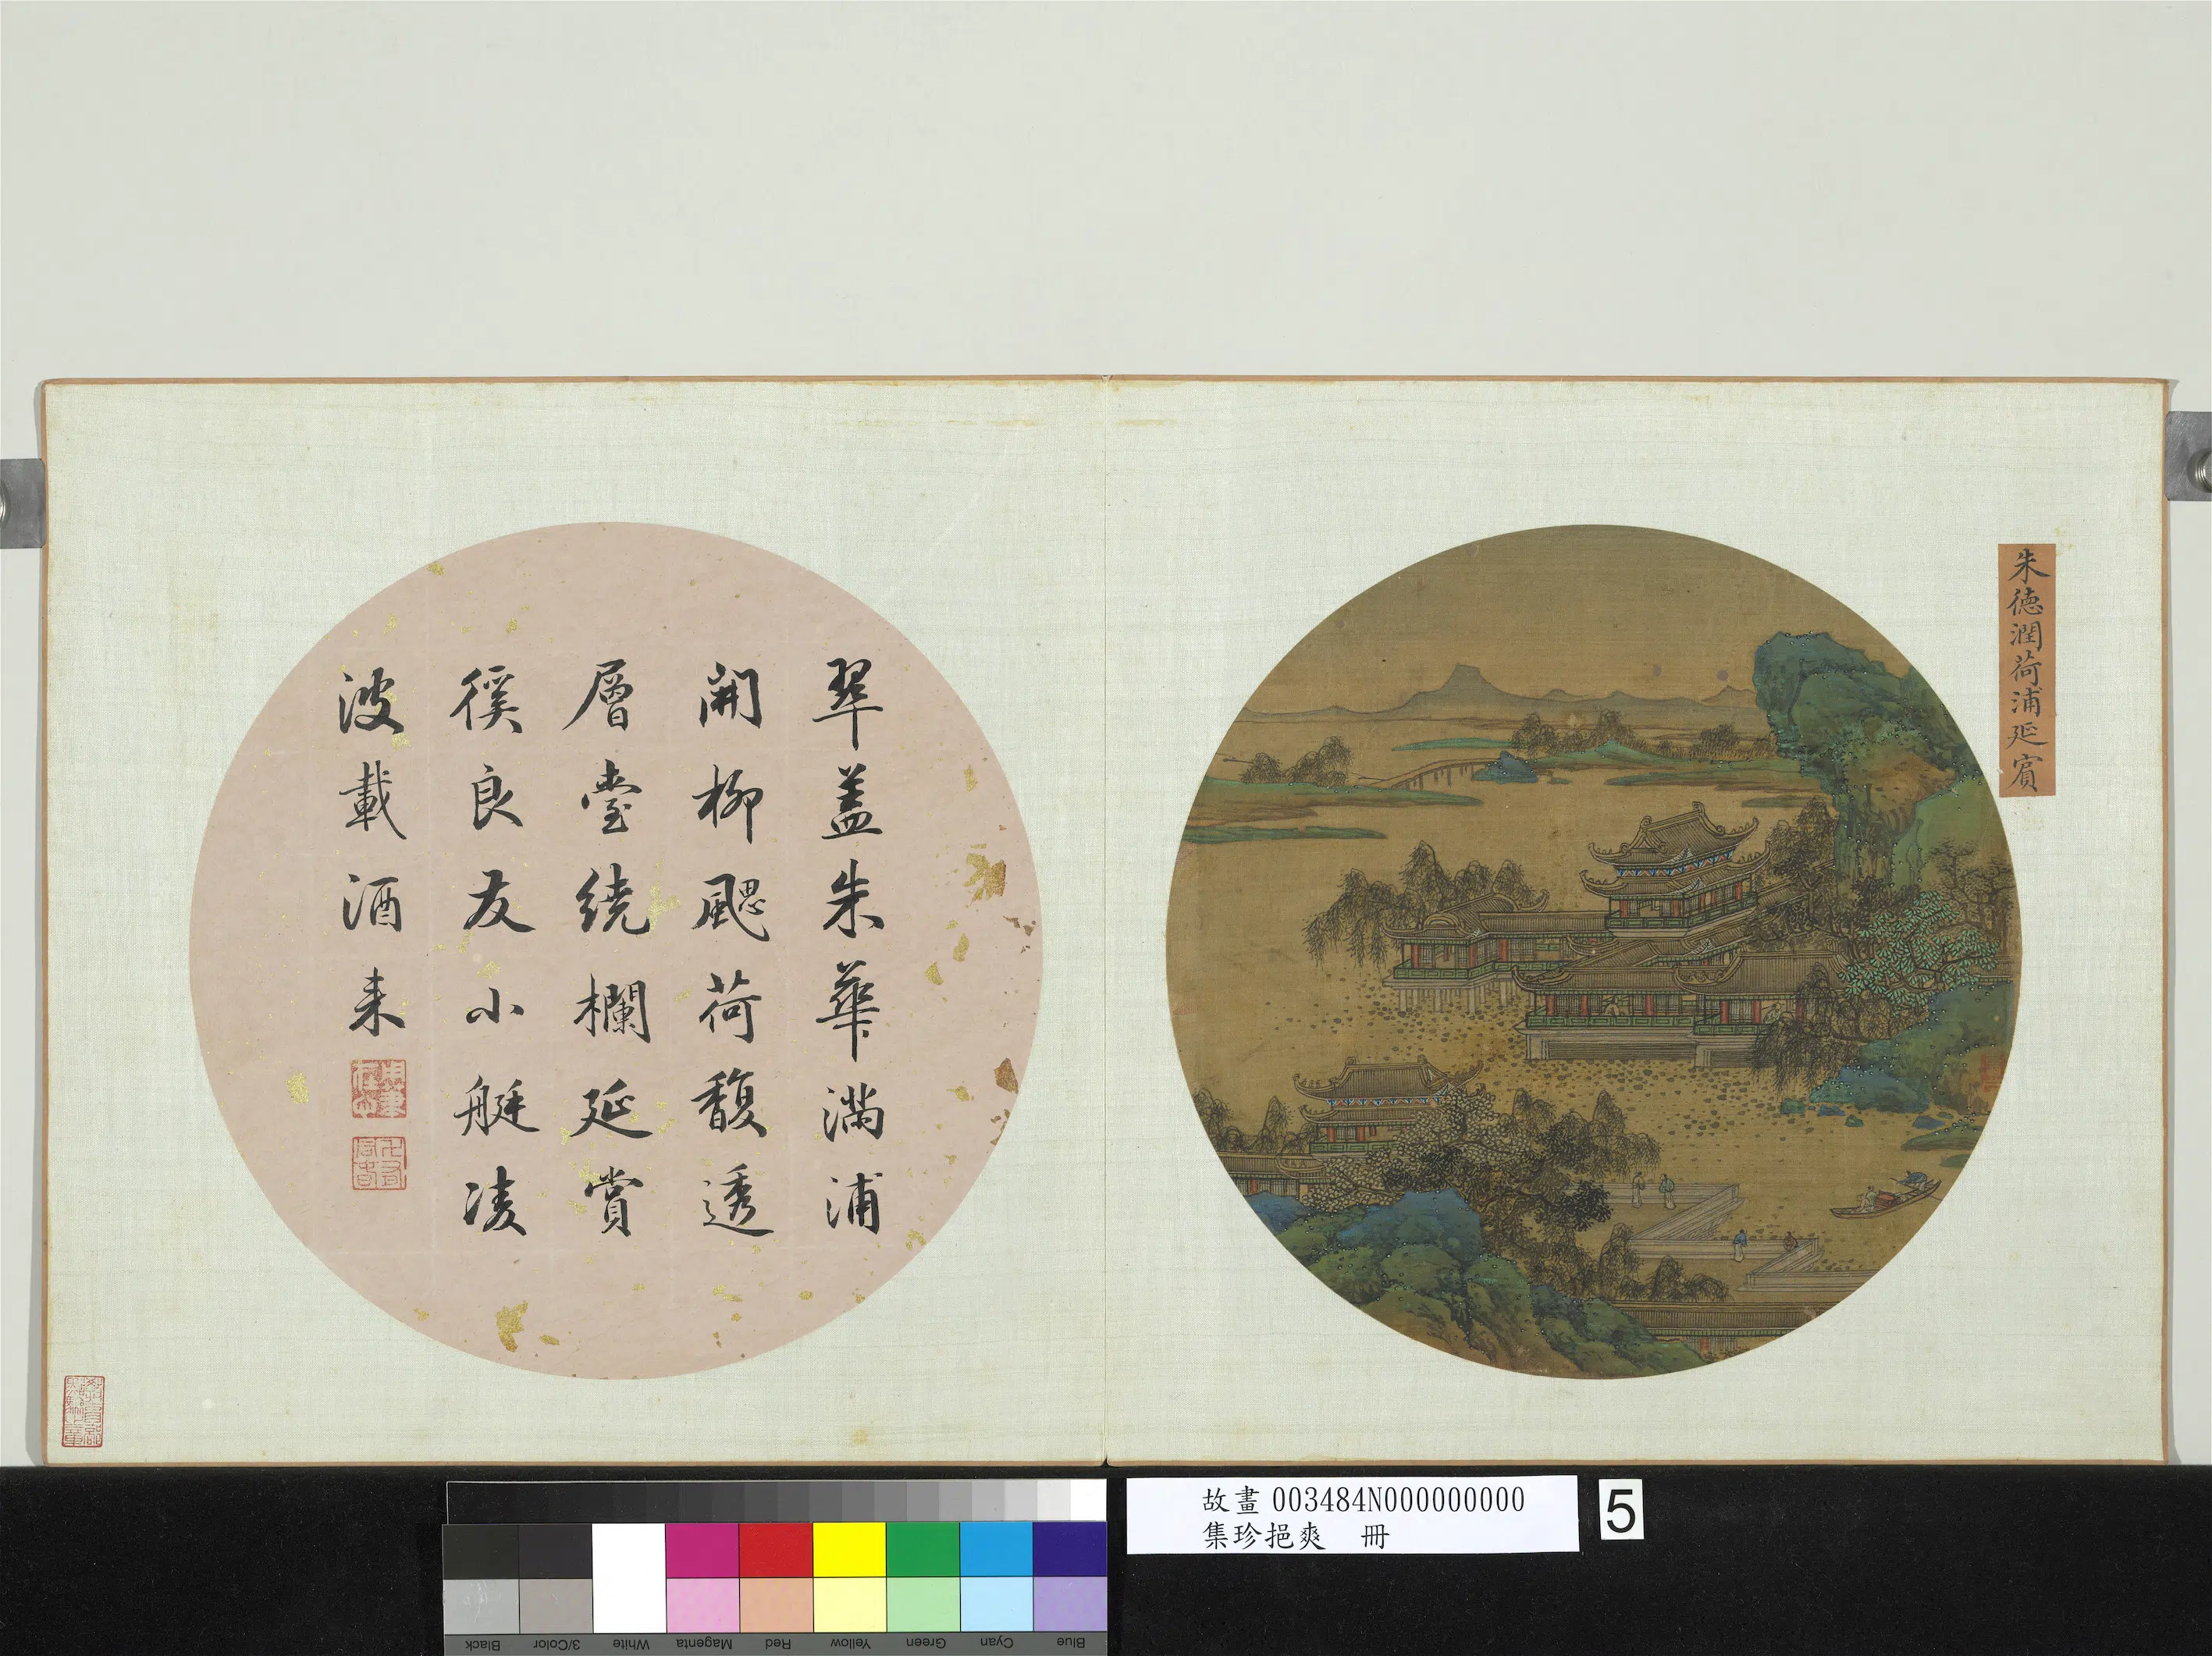 朱德潤荷浦延賓
翠蓋朱華滿浦
開柳颸荷馥透
層臺繞欄延賞
徯良友小艇凌
波載酒來
故畫 003484N000000000
集珍挹爽 冊
5
Black
3/Color
White
Magenta
Red
Yellow
Green
Cyan
Blue